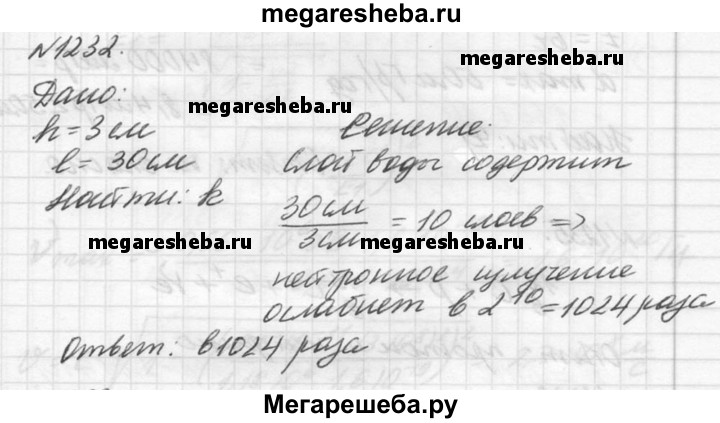 megaresheba.ru
N1232.
Дано:
megaresheba.ru
megaresheba.ru
h = 3 см
Решение:
l = 30 см
слой воды содержит
Найти: k
30 см / 3 см = 10 слоев =>
megaresheba.ru
megaresheba.ru
нейтронное излучение
ослабнет в 2^10 = 1024 раза
Ответ: в 1024 раза
Мегарешеба.ру